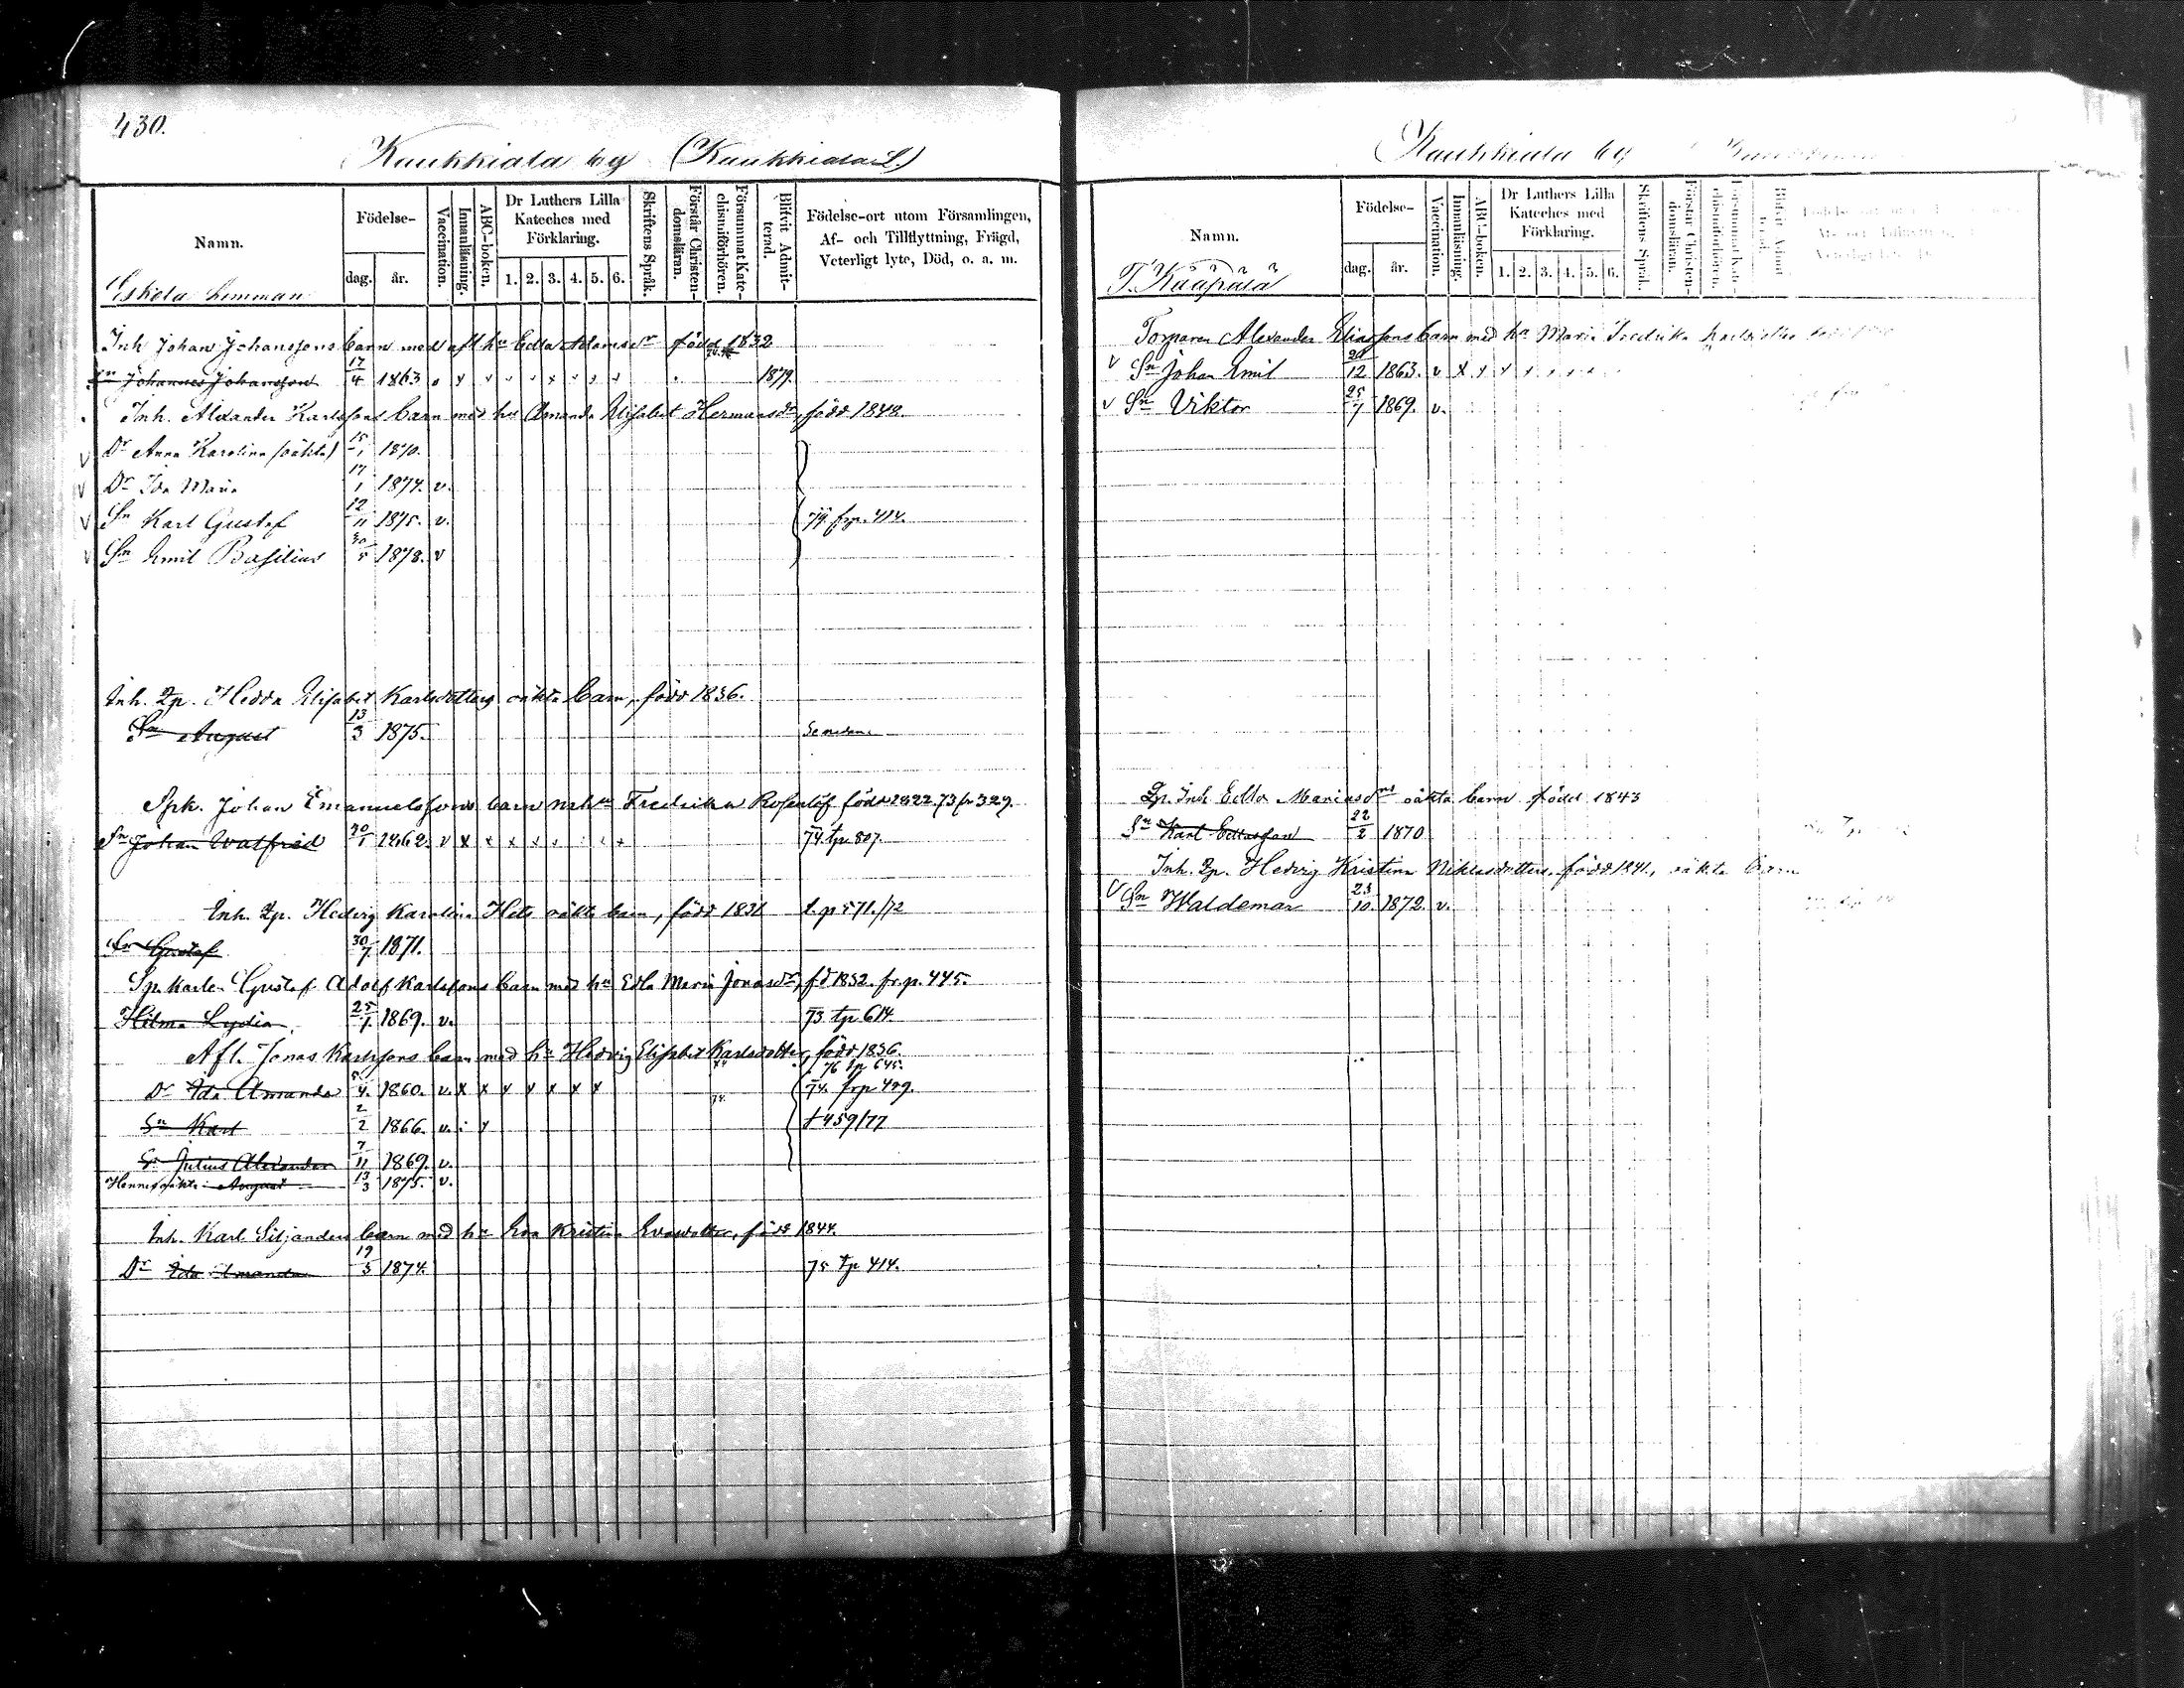 430.
Kaukkiala by (Kaukkiala L.)
Namn.
Födelse-
dag.
år.
Vaccination.
Innanläsning.
ABC-boken.
Dr Luthers Lilla Kateches med Förklaring.
1. 2. 3. 4. 5. 6.
Skriftens Språk.
Förstår Christendomsläran.
Försummat Katechismiförhören.
Blifvit Admitterad.
Födelse-ort utom Församlingen, Af- och Tillflyttning, Frägd, Veterligt lyte, Död, o. a. m.
Eskola hemman
Inh Johan Johanssons barn med afl hu Edla Adamsdr född 1832
Sn Johannes Johansson 17/4 1863 1879.
Inh. Alexander Karlssons barn med hu Amanda Elisabet Hermansdr, född 1848.
v Dr Anna Karolina (oäkta) 15/1 1870.
v Dr Ida Maria 17/1 1874. v.
v Sn Karl Gustaf 12/11 1875. v. 79 frp. 414.
v Sn Emil Basilius 30/5 1878. v
Inh. Qp. Hedda Elisabet Karlsdotters oäkta barn, född 1836.
Sn August 13/3 1875. Se nedan.
Spk. Johan Emanuelssons barn m hu Fredrika Rosenlöf född 1822. 73 fr 329.
Sn Johan Walfrid 30/1 1862. v x x x x 74 tp 807.
Inh. Qp. Hedvig Karolina oäkta barn, född 1831 t. p 571./72
Sn Gustaf 30/7 1871.
Sp karlen Gustaf Adolf Karlssons barn med hu Edla Maria Jonasdr, fd 1832. fr. p. 445.
Hilma Lydia 25/1 1869. v. 73 tp 614
Afl. Jonas Karlssons barn med hu Hedvig Elisabet Karlsdotter, född 1836.
76 tp 645.
Dr Ida Amanda 5/4 1860. v. x x x x x x x 74. frp 429.
Sn Karl 2/2 1866. v. t 459/77
Sn Julius Alexander 7/11 1869. v.
Hennes oäkta August 13/3 1875. v.
Inh. Karl Siljanders barn med hu Eva Kristina Evasdotter, född 1844.
Dr Ida Amanda 19/5 1874. 75 tp 414.
Kaukkiala by
Namn.
Födelse-
dag.
år.
Vaccination.
Innanläsning.
ABC-boken.
Dr Luthers Lilla Kateches med Förklaring.
1. 2. 3. 4. 5. 6.
Skriftens Språk.
Förstår Christendomsläran.
T. Kääpälä
Torparen Alexander Eliassons barn med hu Maria Fredrika
v Sn Johan Emil 20/12 1863. v x x x
v Sn Viktor 25/7 1869. v.
Qp. Inh Edla Mariasdrs oäkta barn född 1843
Sn Karl Edlasson 22/2 1870
Inh. Qp. Hedvig Kristina Niklasdotters. född 1841., oäkta barn
v Sn Waldemar 23/10 1872. v.